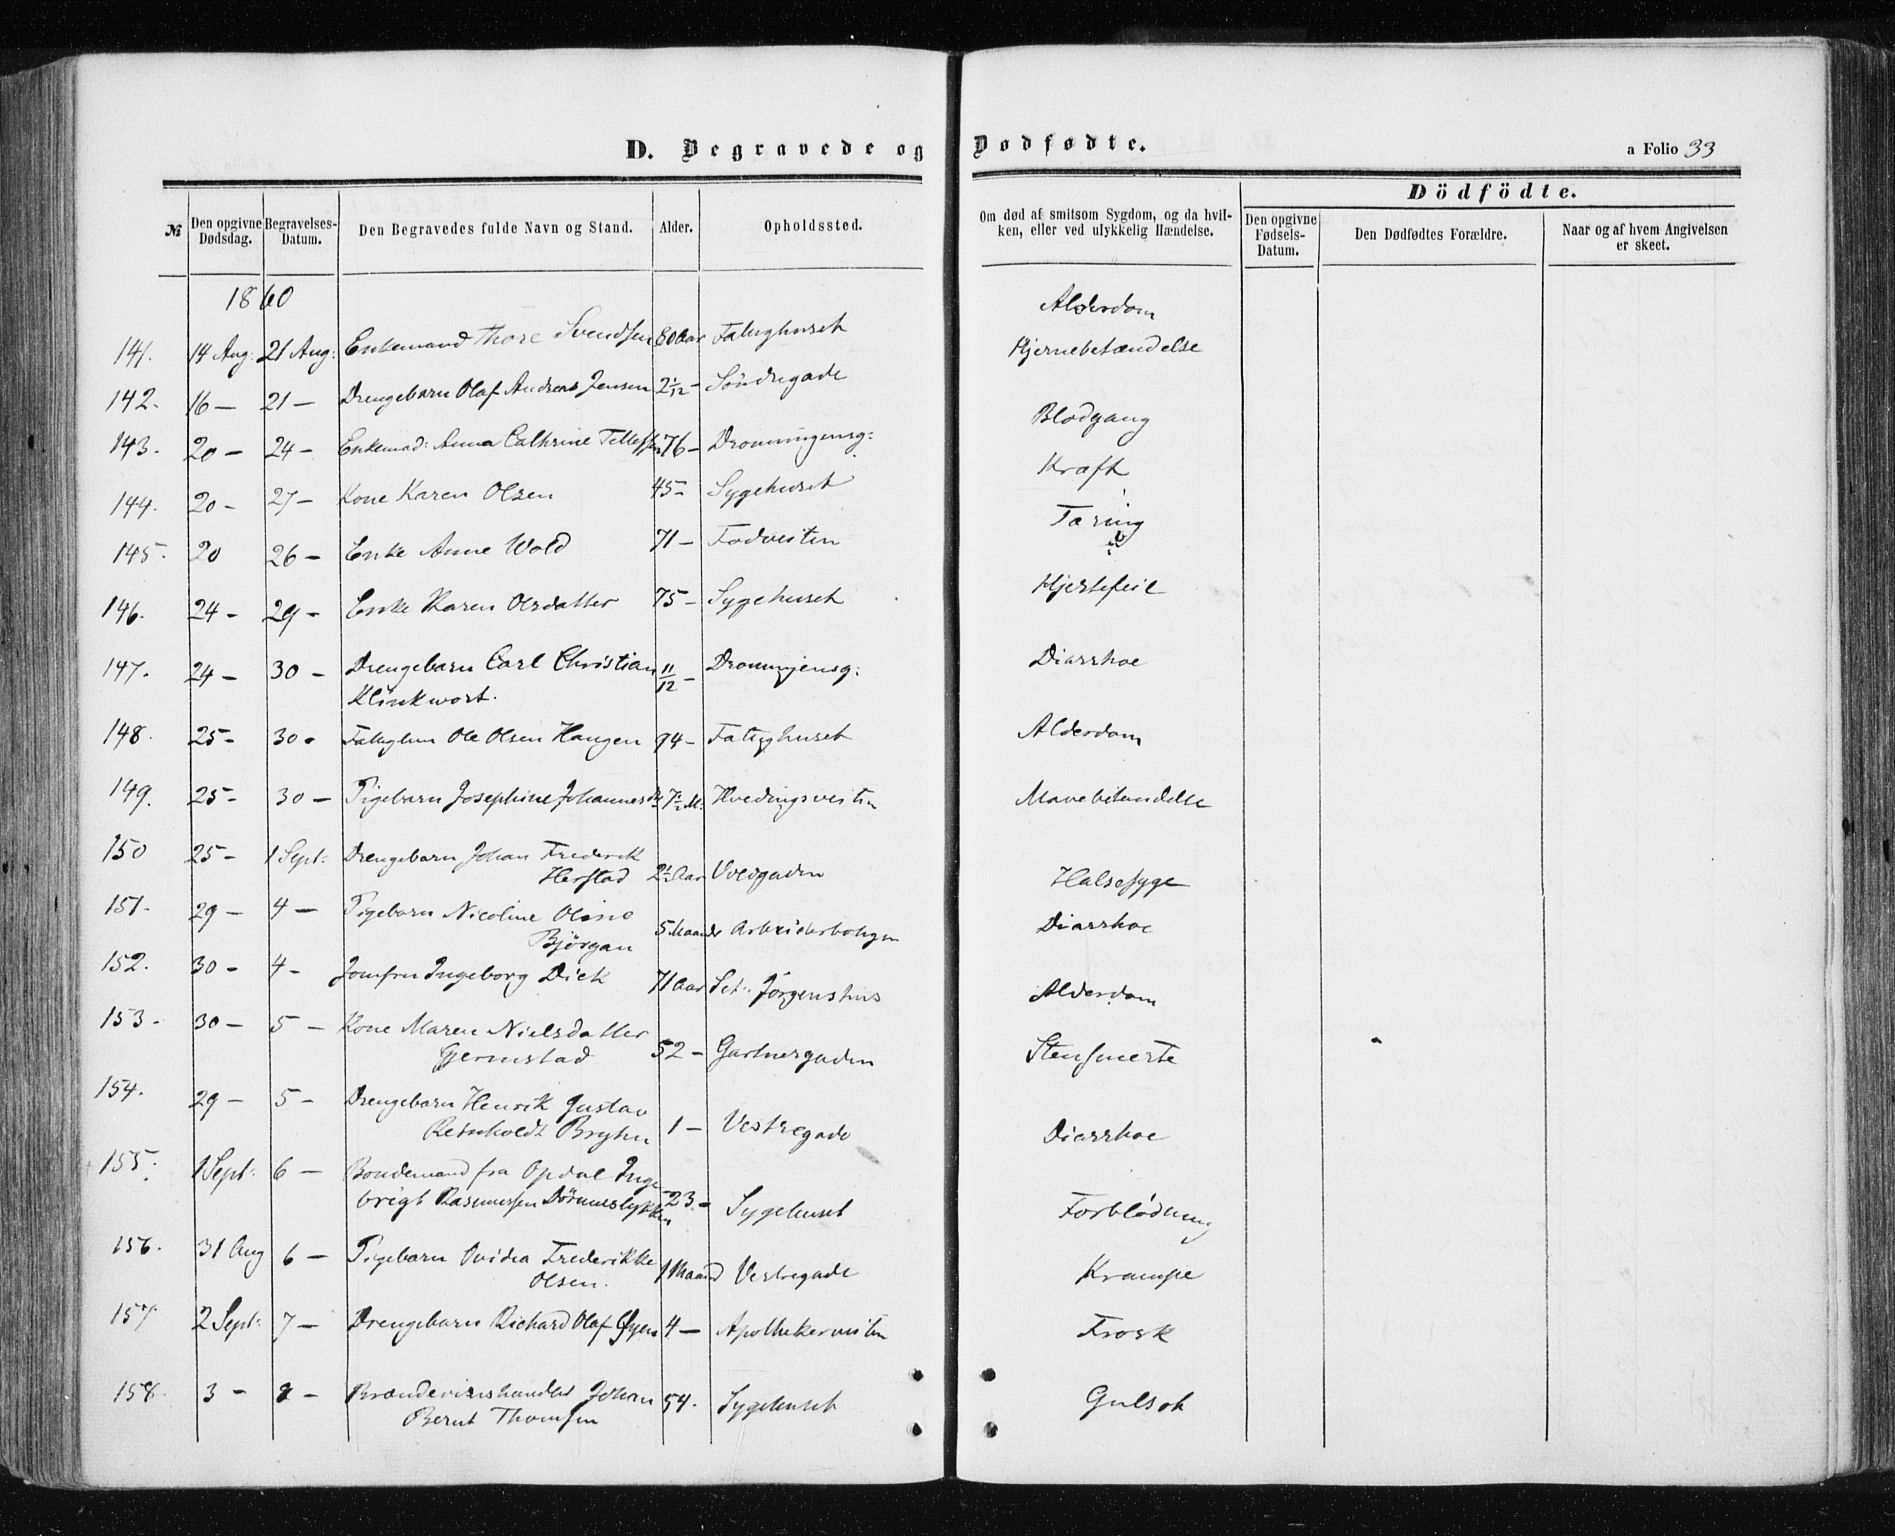 D. Begravede og Dødfødte.
a Folio 33
Dödfödte.
№ Den opgivne Dødsdag. Begravelses-Datum. Den Begravedes fulde Navn og Stand. Alder. Opholdssted. Om død af smitsom Sygdom, og da hvilken, eller ved ulykkelig Hændelse. Den opgivne Fødsels-Datum. Den Dødfødtes Forældre. Naar og af hvem Angivelsen er skeet.
1860
141. 14 Aug: 21 Aug: Enkemand Thore Svendsen 80 Aar Fattighuset Alderdom
142. 16 — 21 — Drengebarn Olaf Andreas Jensen 2 1/12 — Söndregade Hjernebetændelse
143. 20 — 24 — Enkemad: Anna Cathrine Tellefsen 76 — Dronningensg: Blodgang
144. 20 - 27 — Kone Karen Olsen 45 - Sygehuset Kræft
145. 20 26 — Enke Anne Wold 71 — Fodvesten Tæring
146. 24 - 29 - Enke Karen Olsdatter 75 — Sygehuset Hjertefeil
147. 24 — 30 - Drengebarn Carl Christian 11/12 — Dronningensg: Diarrhoe
Klinkwort.
148. 25 - 30 - Fattiglem Ole Olsen Haugen 94 — Fattighuset Alderdom
149. 25 - 30 — Pigebarn Josephine Johannesdr 7 1/2 M: Hvedingsvesten Mavebetændelse
150 25 - 1 Sept: Drengebarn Johan Frederik
Herstad 2 1/2 Aar Voldgaden Halsesyge
151. 29 — 4 — Pigebarn Nicoline Oline
Bjørgan 5 Maander Arbeiderboligen Diarrhoe
152. 30 - 4 - Jomfru Ingeborg Dick 71 Aar Sct. Jørgenshus Alderdom
153. 30 — 5 — Kone Maren Nielsdatter
Gjermstad 52 — Gartnergaden Stensmerte
154. 29 — 5 — Drengebarn Henrik Gustav
Reinholdt Bryhn 1 — Vestregade Diarrhoe
155. 1 Sept: 6 — Bondemand fra Opdal Inge
brigt Rasmussen 23 - Sygehuset Forblødning
156. 31 Aug 6 — Pigebarn Ovidia Frederikke
Olsen. 1 Maaned Vestregade Krampe
157. 2 Sept: 7 — Drengebarn Richard Olaf Øyen 4 — Apothekervesten Frosk
158. 3 - 8 - Brændeviinshandler Johan
Bernt Thomsen 54. Sygehuset Gulsot